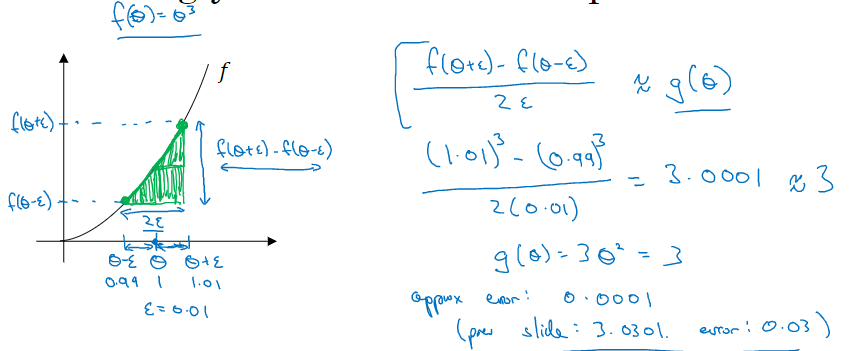 f(θ) = θ³
f
f(θ+ε)
f(θ+ε) - f(θ-ε)
f(θ-ε)
2ε
θ-ε θ θ+ε
0.99 1 1.01
ε = 0.01
f(θ+ε) - f(θ-ε) / 2ε ≈ g(θ)
(1.01)³ - (0.99)³ / 2(0.01) = 3.0001 ≈ 3
g(θ) = 3θ² = 3
approx error: 0.0001
(prev slide: 3.0301. error: 0.03)